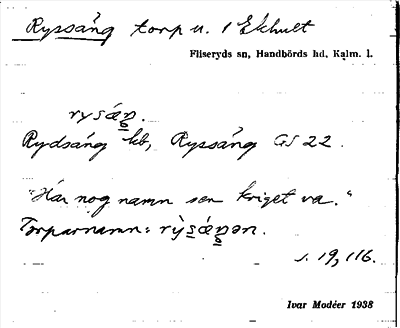 Ryssång torp u. 1 Ekhult
Fliseryds sn, Handbörds hd, Kalm. l.
rysáŋ.
Rydsång kb, Ryssång GS 22.
"Har nog namn sen kriget va."
Torparnamn: rỳsáŋən.
s. 19, 116.
Ivar Modéer 1938